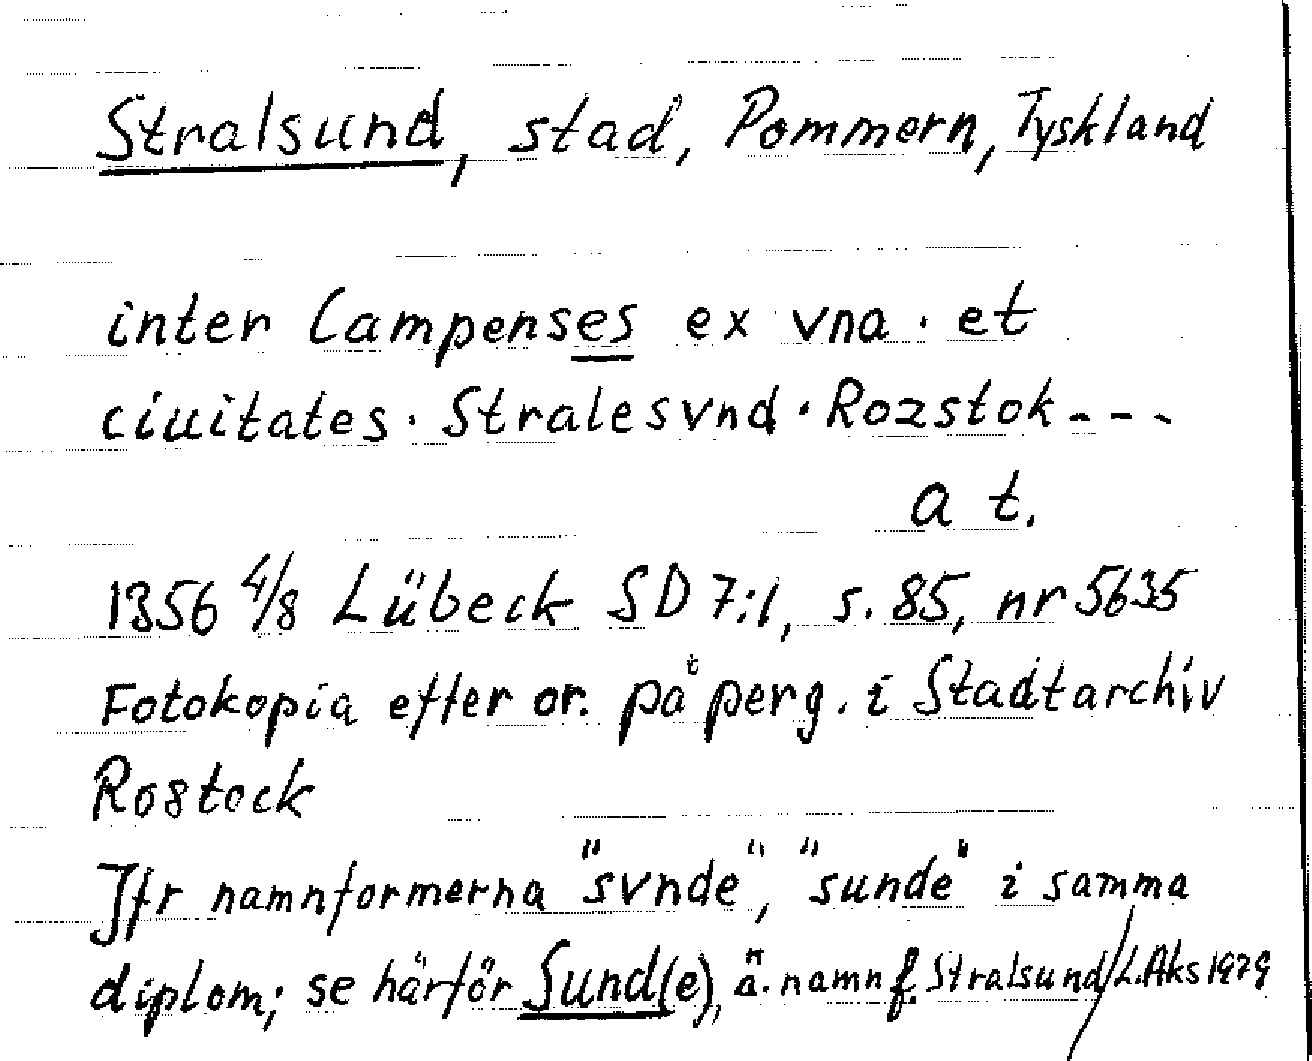 Stralsund, stad, Pommern, Tyskland
inter Campenses ex vna · et
ciuitates · Stralesvnd · Rozstok ---
a t.
1356 4/8 Lübeck SD 7:1, s. 85, nr 5635
Fotokopia efter or. på perg. i Stadtarchiv
Rostock
Jfr namnformerna "svnde", "sunde" i samma
diplom; se härför Sund(e), ä. namnf. Stralsund/L.Aks 1979